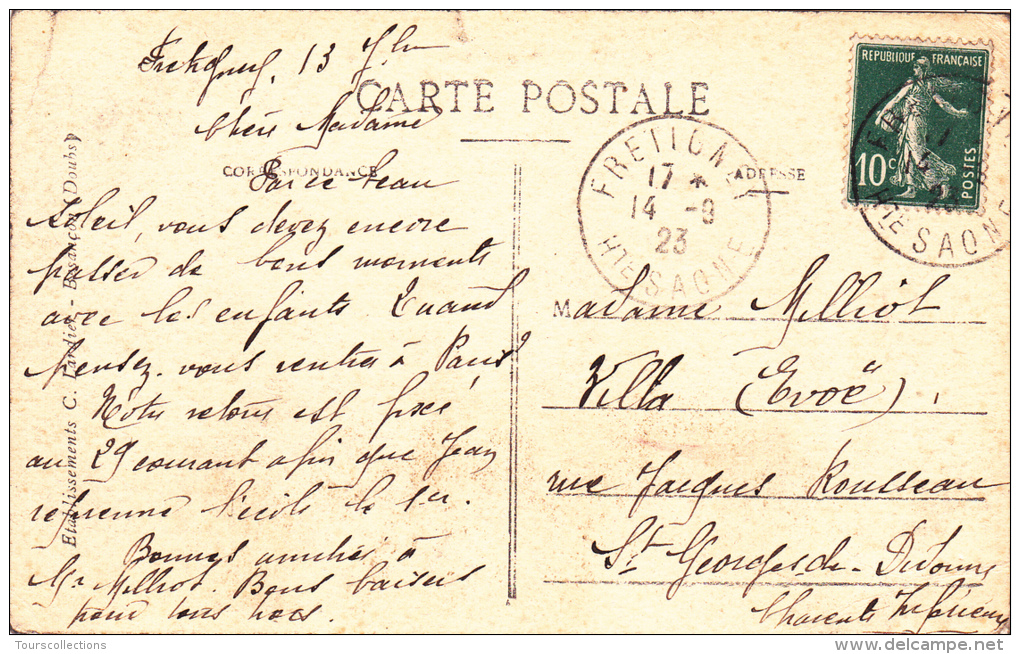 Fretigney, 13 7bre
CARTE POSTALE
Chère Madame
CORRESPONDANCE
ADRESSE
Par ce beau
soleil, vous devez encore
passer de bons moments
avec les enfants. Quand
pensez-vous rentrer à Paris?
Notre retour est fixé
au 29 courant afin que Jean
reprenne l'école le 1er.
Bonnes amitiés à
Mr Milliot. Bons baisers
pour tous
Etablissements C. Lardier - Besançon (Doubs)
REPUBLIQUE FRANÇAISE
10c
POSTES
FRETIGNEY
17 *
14 -9
23
HTE SAONE
HTE SAONE
Madame Milliot
Villa (Evoë),
rue Jacques Rousseau
St Georges de Didonne
Charente Inférieure
Tourscollections
delcampe.net